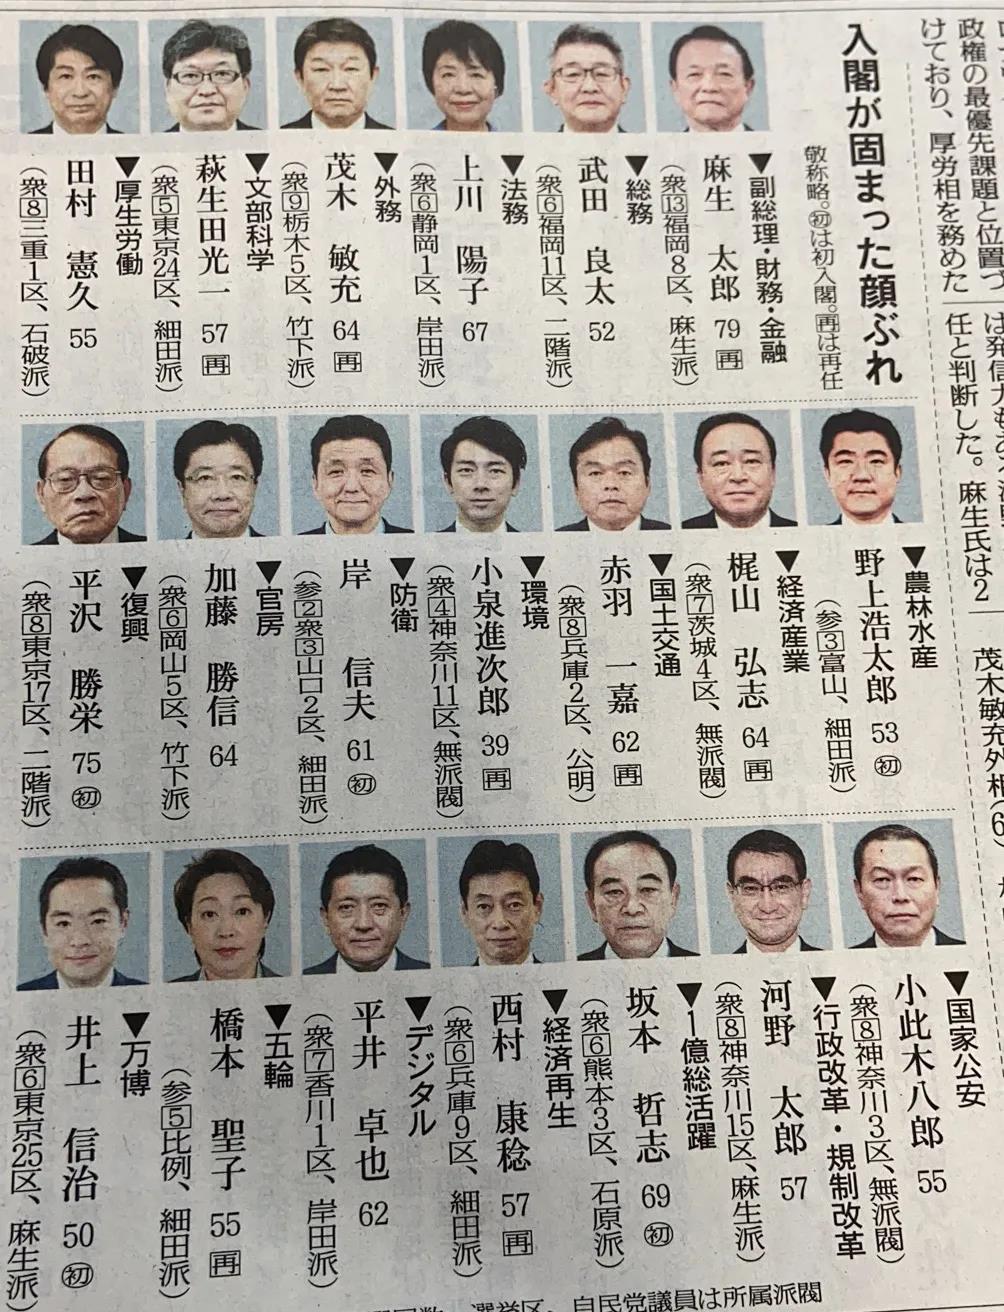 けており、厚労相を務めた
政権の最優先課題と位置づ
任と判断した。麻生氏は2
茂木敏充外相(6
入閣が固まった顔ぶれ
敬称略。㊞は初入閣。再は再任
▼副総理・財務・金融
麻生 太郎 79 再
(衆13福岡8区、麻生派)
▼総務
武田 良太 52
(衆6福岡11区、二階派)
▼法務
上川 陽子 67
(衆6静岡1区、岸田派)
▼外務
茂木 敏充 64 再
(衆9栃木5区、竹下派)
▼文部科学
萩生田光一 57 再
(衆5東京24区、細田派)
▼厚生労働
田村 憲久 55
(衆8三重1区、石破派)
▼農林水産
野上浩太郎 53 初
(参3富山、細田派)
▼経済産業
梶山 弘志 64 再
(衆7茨城4区、無派閥)
▼国土交通
赤羽 一嘉 62 再
(衆8兵庫2区、公明)
▼環境
小泉進次郎 39 再
(衆4神奈川11区、無派閥)
▼防衛
岸 信夫 61 初
(参2衆3山口2区、細田派)
▼官房
加藤 勝信 64
(衆6岡山5区、竹下派)
▼復興
平沢 勝栄 75 初
(衆8東京17区、二階派)
▼国家公安
小此木八郎 55
(衆8神奈川3区、無派閥)
▼行政改革・規制改革
河野 太郎 57
(衆8神奈川15区、麻生派)
▼1億総活躍
坂本 哲志 69 初
(衆6熊本3区、石原派)
▼経済再生
西村 康稔 57 再
(衆6兵庫9区、細田派)
▼デジタル
平井 卓也 62
(衆7香川1区、岸田派)
▼五輪
橋本 聖子 55 再
(参5比例、細田派)
▼万博
井上 信治 50 初
(衆6東京25区、麻生派)
選挙区、自民党議員は所属派閥